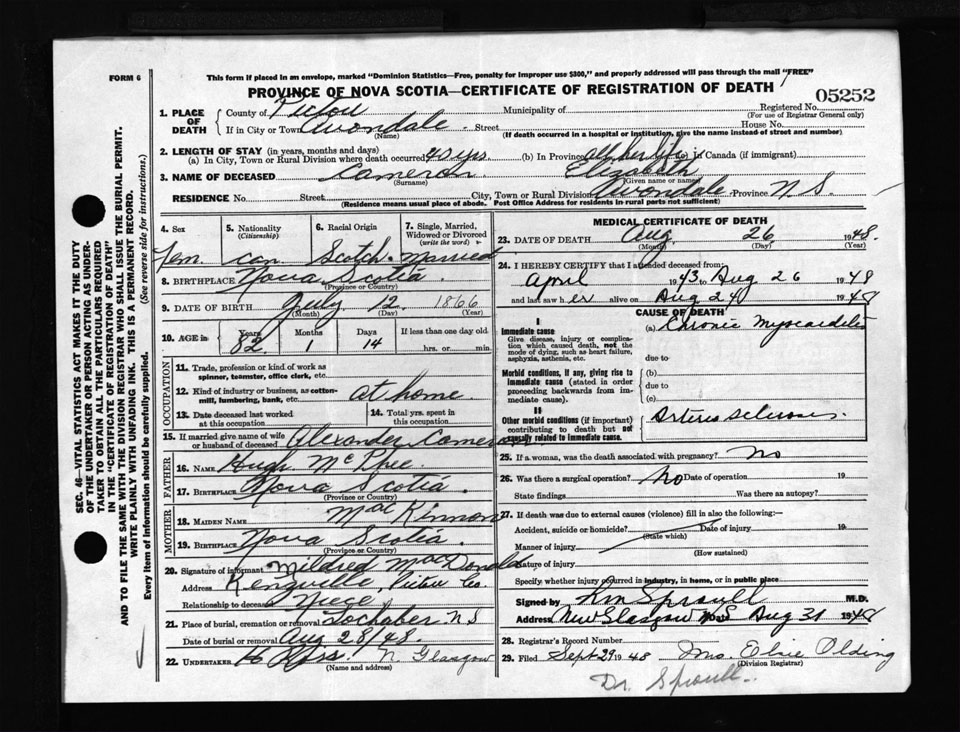 FORM 6
This form if placed in an envelope, marked "Dominion Statistics—Free, penalty for improper use $300," and properly addressed will pass through the mail "FREE"
PROVINCE OF NOVA SCOTIA—CERTIFICATE OF REGISTRATION OF DEATH
05252
1. PLACE OF DEATH
County of Pictou Municipality of Registered No.
(For use of Registrar General only)
If in City or Town Avondale Street House No.
(Name) (If death occurred in a hospital or institution, give the name instead of street and number)
2. LENGTH OF STAY (in years, months and days)
(a) In City, Town or Rural Division where death occurred 40 yrs (b) In Province all her life (c) in Canada (if immigrant)
3. NAME OF DECEASED Cameron Elizabeth
(Surname) (Given name or names)
RESIDENCE No. Street City, Town or Rural Division Avondale Province N S
(Residence means usual place of abode. Post Office Address for residents in rural parts not sufficient)
4. Sex 5. Nationality (Citizenship) 6. Racial Origin 7. Single, Married, Widowed or Divorced (write the word)
Fem can Scotch Married
8. BIRTHPLACE Nova Scotia
(Province or Country)
9. DATE OF BIRTH July 12 1866
(Month) (Day) (Year)
10. AGE in Years Months Days If less than one day old
82 1 14 hrs. or min.
OCCUPATION
11. Trade, profession or kind of work as spinner, teamster, office clerk, etc.
12. Kind of industry or business, as cotton-mill, lumbering, bank, etc. at home
13. Date deceased last worked at this occupation 14. Total yrs. spent in this occupation
15. If married give name of wife or husband of deceased Alexander Cameron
FATHER
16. NAME Hugh McPhee
17. BIRTHPLACE Nova Scotia
(Province or Country)
MOTHER
18. MAIDEN NAME MacKinnon
19. BIRTHPLACE Nova Scotia
(Province or Country)
20. Signature of informant Mildred MacDonald
Address Kenzieville, Pictou Co
Relationship to deceased Niece
21. Place of burial, cremation or removal Lochaber N S
Date of burial or removal Aug 28/48.
22. UNDERTAKER N. Glasgow
(Name and address)
MEDICAL CERTIFICATE OF DEATH
23. DATE OF DEATH Aug 26 1948.
(Month) (Day) (Year)
24. I HEREBY CERTIFY that I attended deceased from:
April 1943 to Aug 26 1948
and last saw her alive on Aug 24 1948
CAUSE OF DEATH
I
Immediate cause
Give disease, injury or complication which caused death, not the mode of dying, such as heart failure, asphyxia, asthenia, etc.
(a) Chronic Myocarditis
due to
Morbid conditions, if any, giving rise to immediate cause (stated in order proceeding backwards from immediate cause).
(b)
due to
(c)
II
Other morbid conditions (if important) contributing to death but not causally related to immediate cause.
Arterio Sclerosis.
25. If a woman, was the death associated with pregnancy? No
26. Was there a surgical operation? No Date of operation 19
State findings Was there an autopsy?
27. If death was due to external causes (violence) fill in also the following:—
Accident, suicide or homicide? Date of injury 19
(State which)
Manner of injury
(How sustained)
Nature of injury
Specify whether injury occurred in industry, in home, or in public place
Signed by Sproull M.D.
Address New Glasgow NS Date Aug 31 1948
28. Registrar's Record Number
29. Filed Sept 29 1948 Mrs. Olding
(Division Registrar)
Dr. Sproull
SEC. 46—VITAL STATISTICS ACT MAKES IT THE DUTY
OF THE UNDERTAKER OR PERSON ACTING AS UNDER-
TAKER TO OBTAIN ALL THE PARTICULARS REQUIRED
IN THE "CERTIFICATE OF REGISTRATION OF DEATH"
AND TO FILE THE SAME WITH THE DIVISION REGISTRAR WHO SHALL ISSUE THE BURIAL PERMIT.
WRITE PLAINLY WITH UNFADING INK. THIS IS A PERMANENT RECORD.
Every item of Information should be carefully supplied. (See reverse side for instructions.)